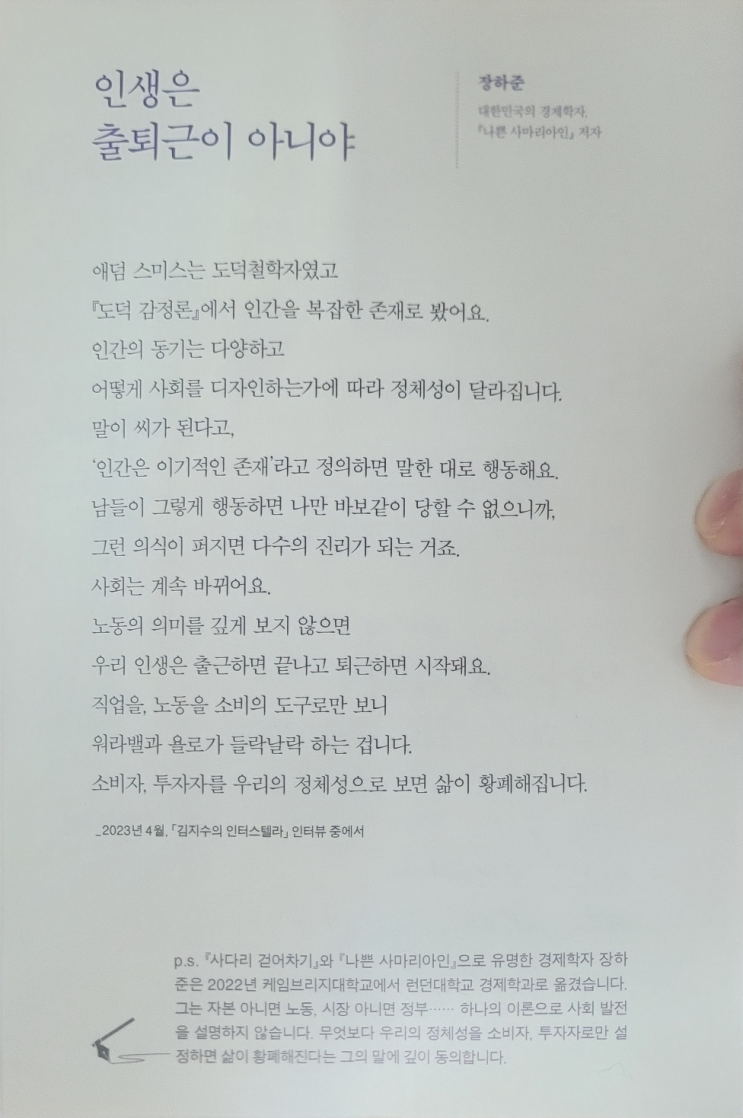 인생은
출퇴근이 아니야
장하준
대한민국의 경제학자,
『나쁜 사마리아인』 저자
애덤 스미스는 도덕철학자였고
『도덕 감정론』에서 인간을 복잡한 존재로 봤어요.
인간의 동기는 다양하고
어떻게 사회를 디자인하는가에 따라 정체성이 달라집니다.
말이 씨가 된다고,
‘인간은 이기적인 존재’라고 정의하면 말한 대로 행동해요.
남들이 그렇게 행동하면 나만 바보같이 당할 수 없으니까,
그런 의식이 퍼지면 다수의 진리가 되는 거죠.
사회는 계속 바뀌어요.
노동의 의미를 깊게 보지 않으면
우리 인생은 출근하면 끝나고 퇴근하면 시작돼요.
직업을, 노동을 소비의 도구로만 보니
워라밸과 욜로가 들락날락 하는 겁니다.
소비자, 투자자를 우리의 정체성으로 보면 삶이 황폐해집니다.
_2023년 4월, 「김지수의 인터스텔라」 인터뷰 중에서
p.s. 『사다리 걷어차기』와 『나쁜 사마리아인』으로 유명한 경제학자 장하
준은 2022년 케임브리지대학교에서 런던대학교 경제학과로 옮겼습니다.
그는 자본 아니면 노동, 시장 아니면 정부…… 하나의 이론으로 사회 발전
을 설명하지 않습니다. 무엇보다 우리의 정체성을 소비자, 투자자로만 설
정하면 삶이 황폐해진다는 그의 말에 깊이 동의합니다.